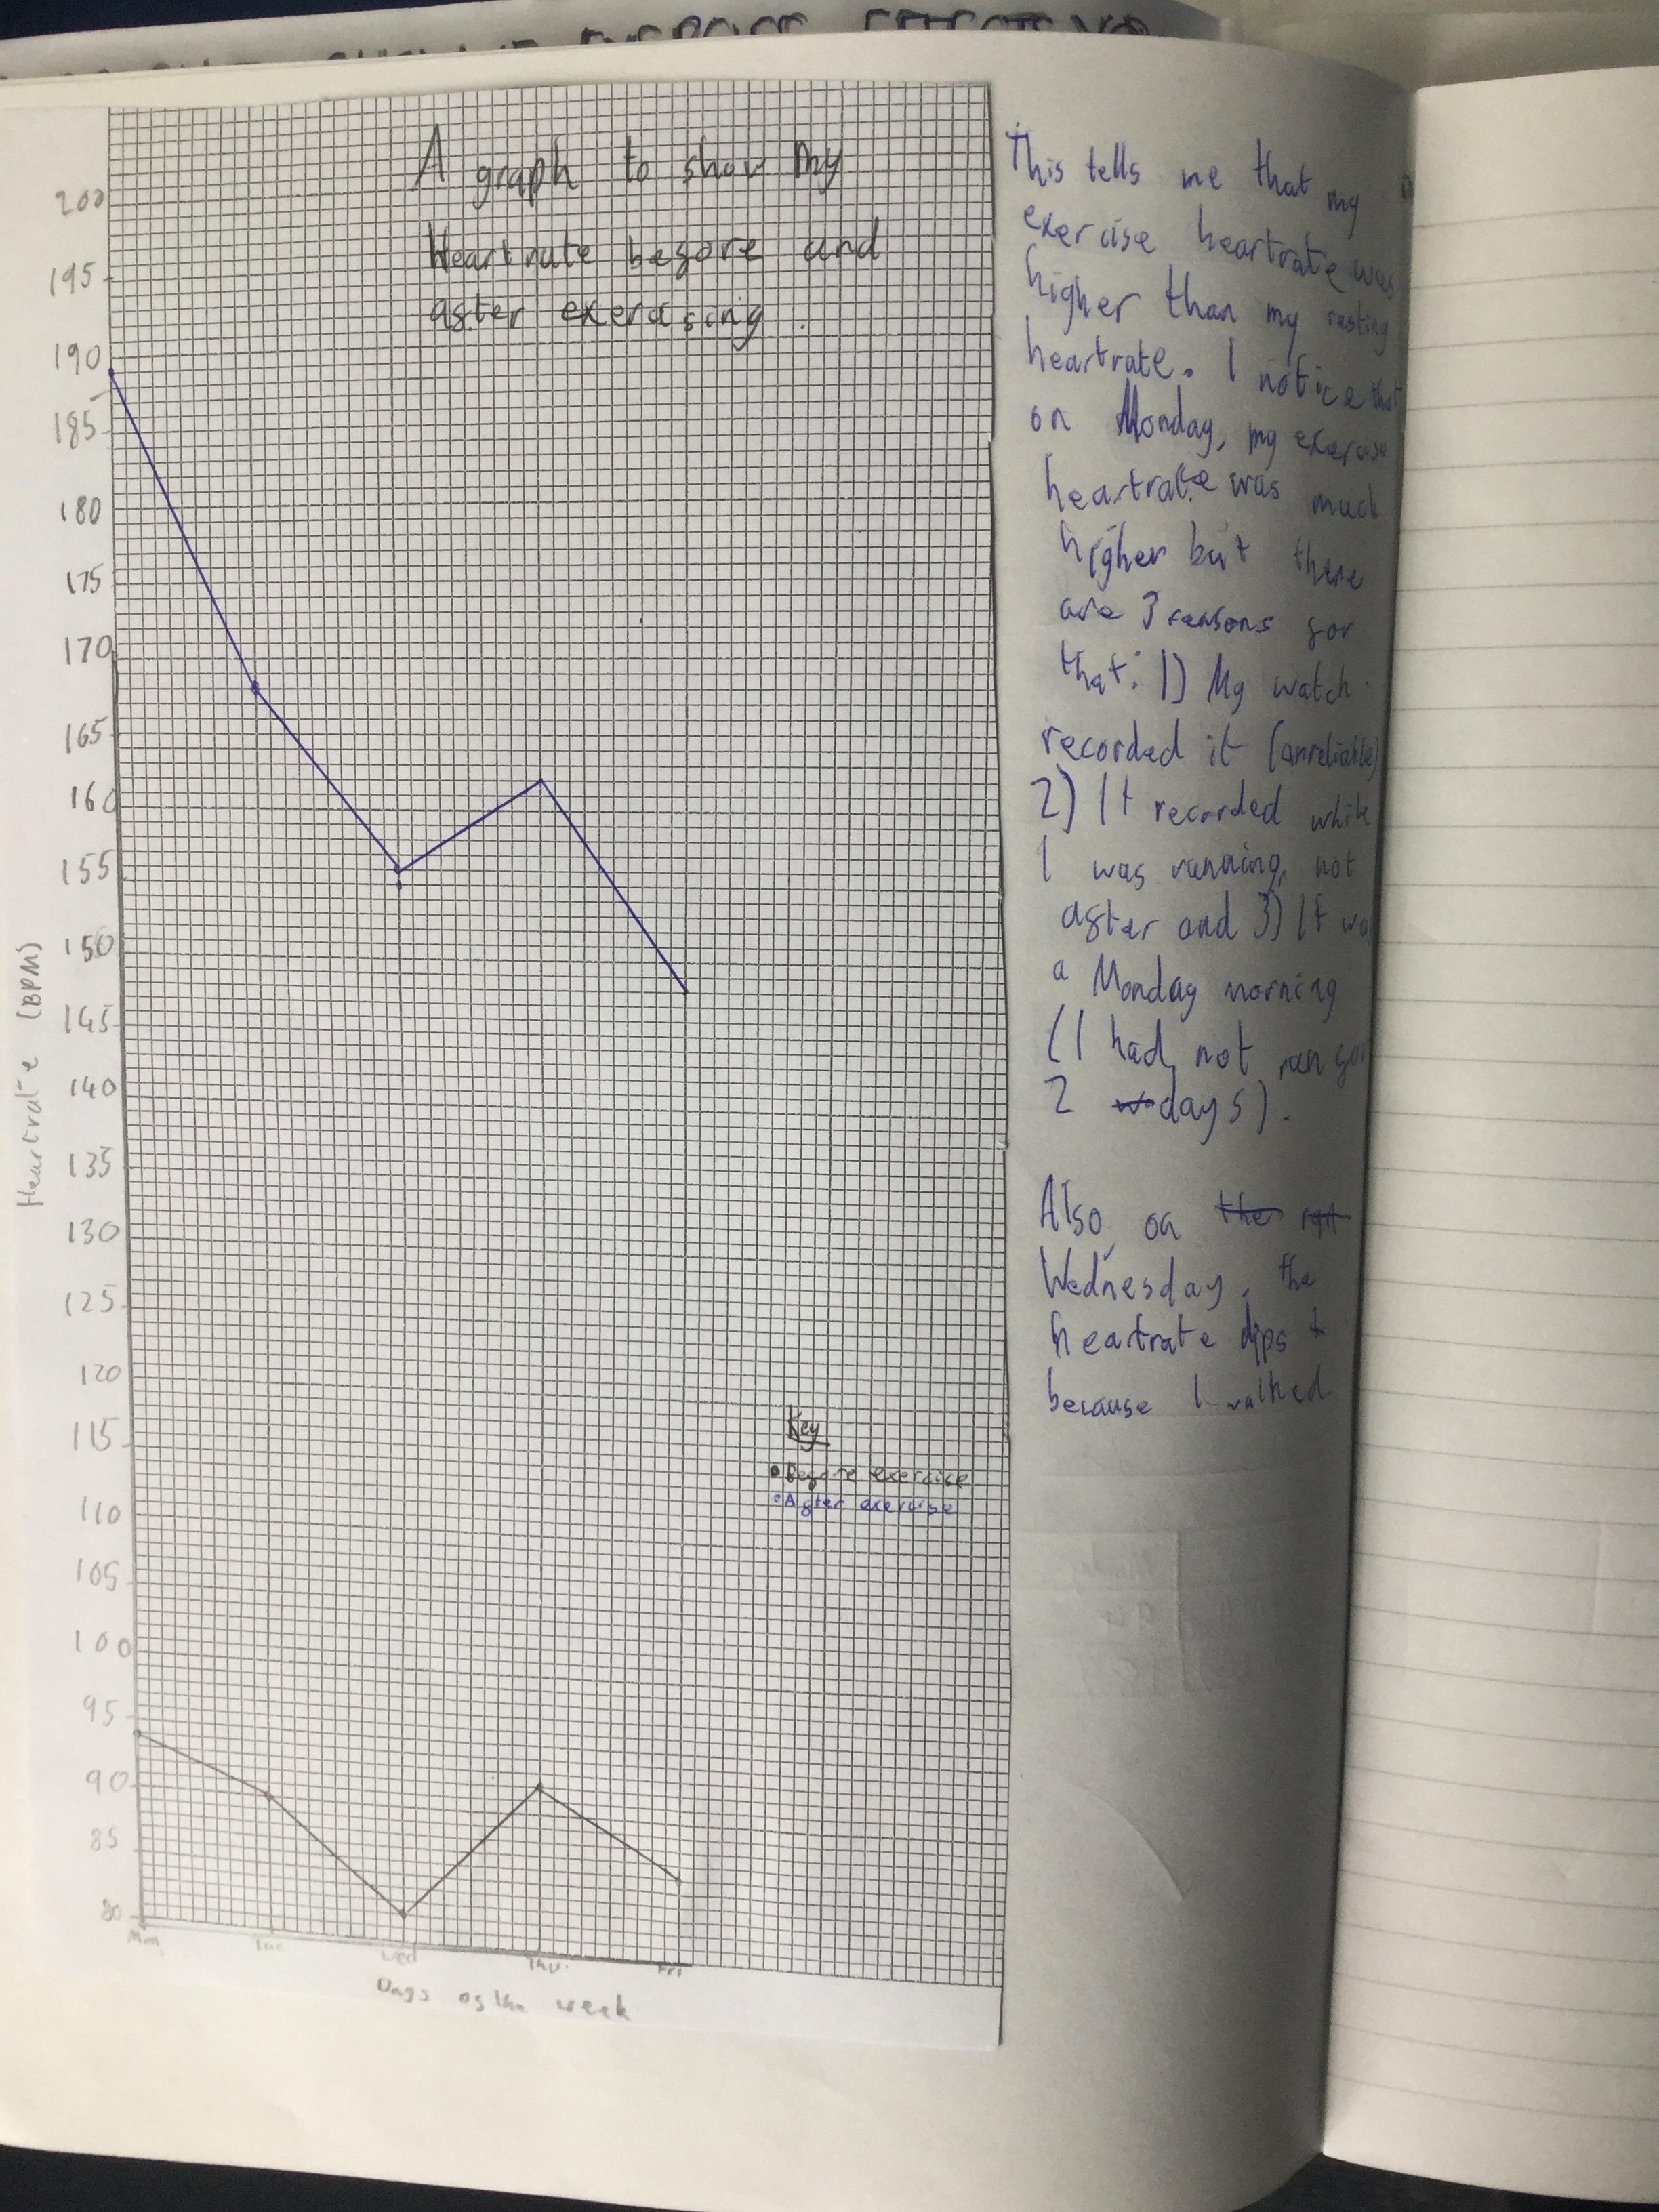 EXERCISE
A graph to show my
Heartrate before and
after exercising.
200
195
190
185
180
175
170
165
160
155
150
145
140
135
130
125
120
115
110
105
100
95
90
85
80
Heartrate (BPM)
Mon
Tue
Wed
Thu.
Fri
Days of the week
Key
Before exercise
After exercise
This tells me that my
exercise heartrate was
higher than my resting
heartrate. I notice that
on Monday, my exercise
heartrate was much
higher but there
are 3 reasons for
that: 1) My watch
recorded it (unreliable)
2) It recorded while
I was running, not
after and 3) It wa
a Monday morning
(I had not run for
2 days).
Also, on the
Wednesday, the
heartrate dips
because I walked.